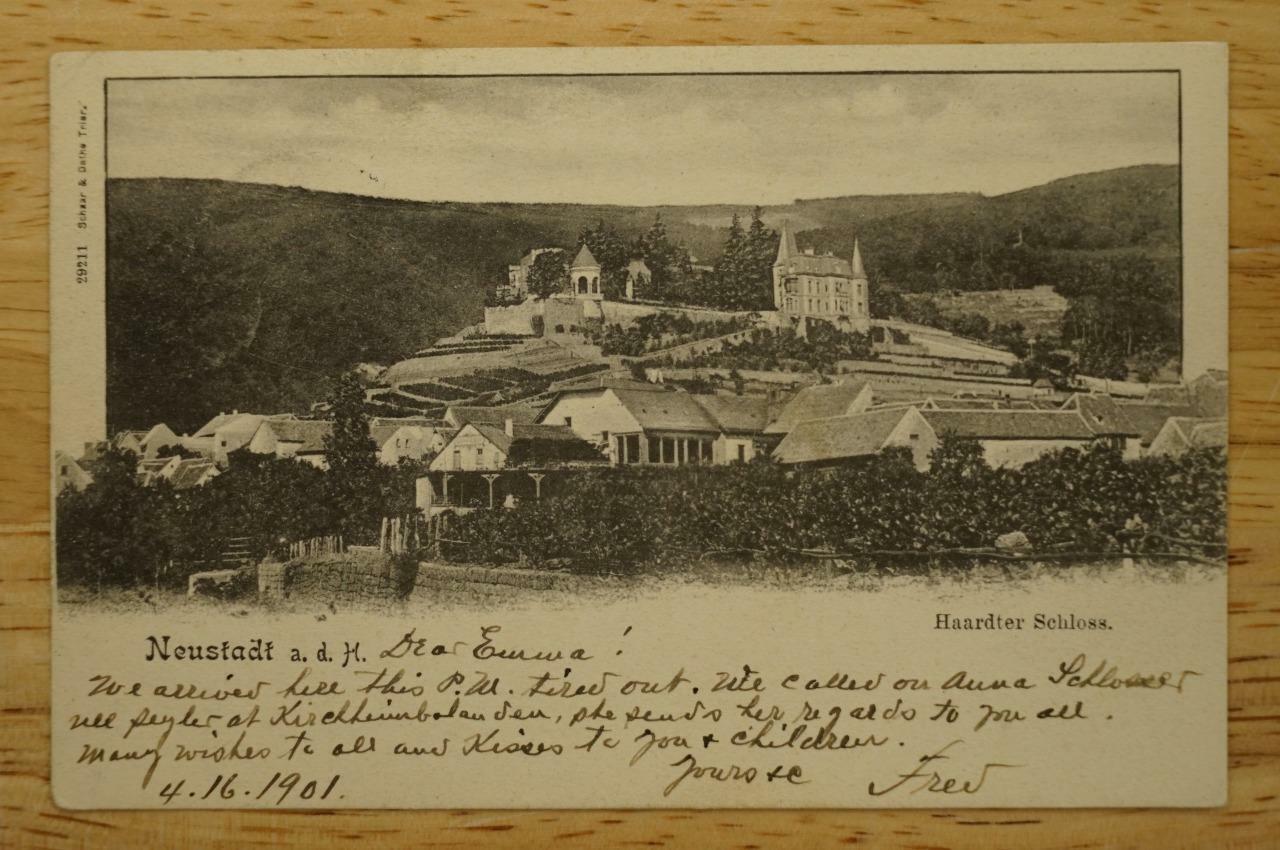 29211 Schaar & Dathe Trier.
Haardter Schloss.
Neustadt a. d. H. Dear Emma!
We arrived here this P.M. tired out. We called on Anna Schlosser
nee at Kirchheimbolanden, she sends her regards to you all.
Many wishes to all and Kisses to you & children.
Yours &c Fred
4.16.1901.